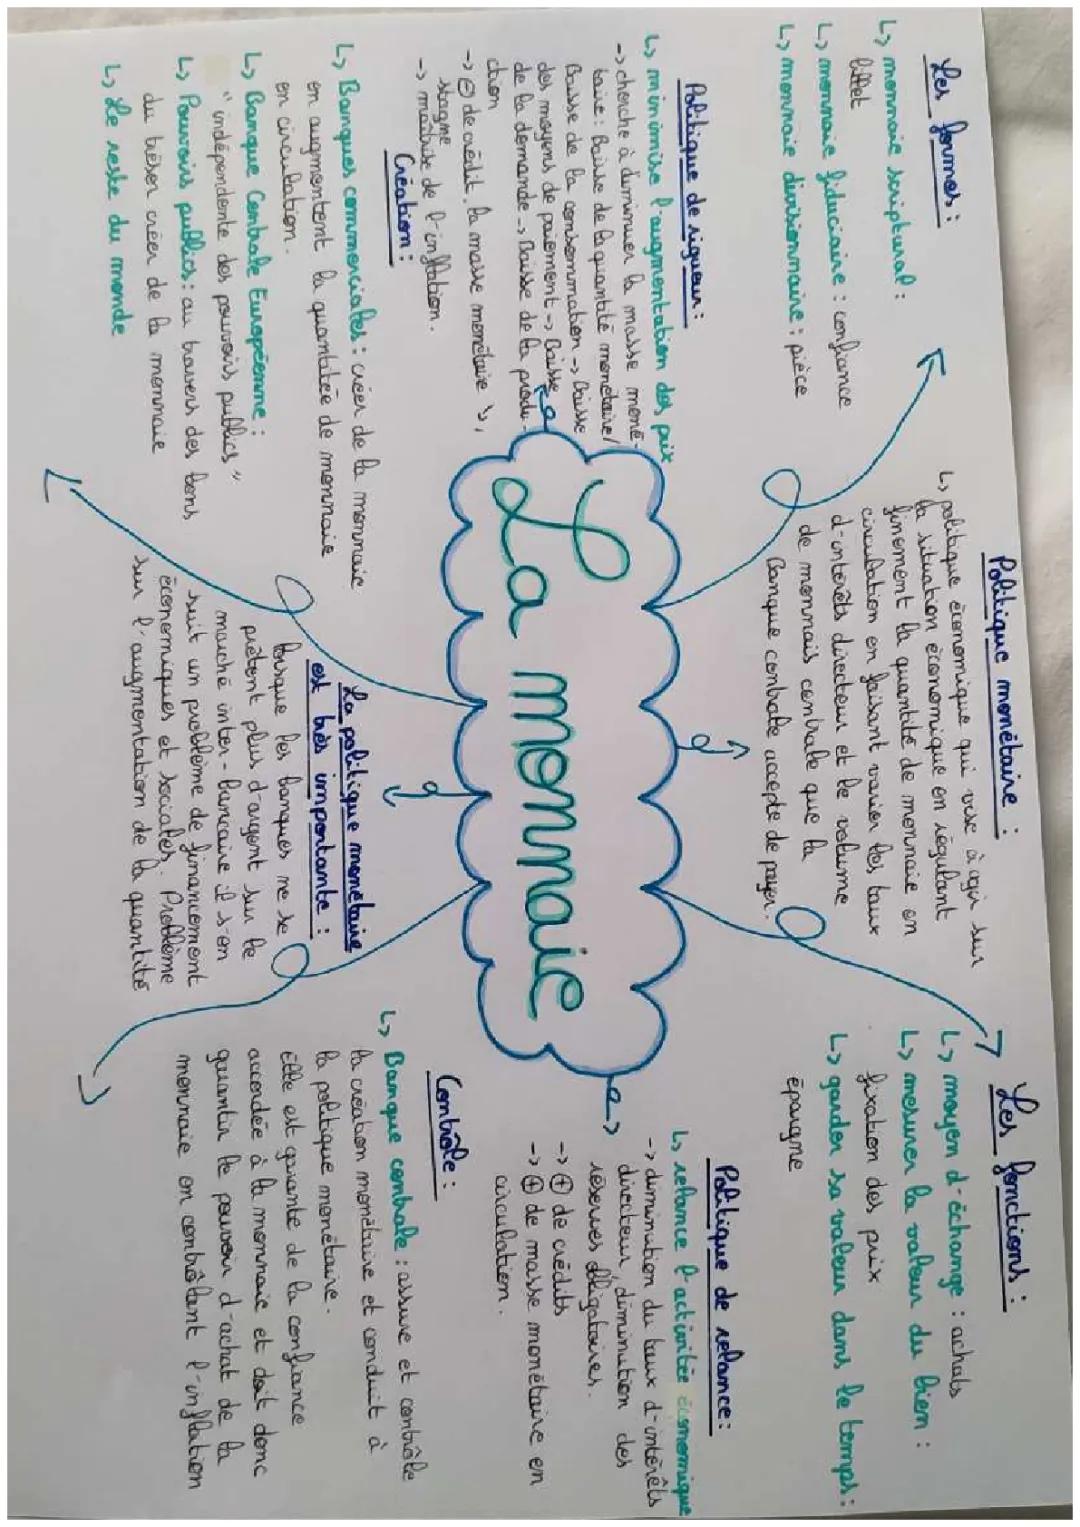 Les formes :
↳ monnaie scriptural :
billet
↳ monnaie fiduciaire : confiance
↳ monnaie divisionnaire : pièce
Politique monétaire :
↳ politique économique qui vise à agir sur
la situation économique en régulant
finement la quantité de monnaie en
circulation en faisant varier les taux
d'intérêts directeur et le volume
de monnais centrale que la
Banque centrale accepte de payer.
Les fonctions :
↳ moyen d'échange : achats
↳ mesurer la valeur du bien :
fixation des prix
↳ garder sa valeur dans le temps :
épargne
Politique de rigueur :
↳ minimise l'augmentation des prix
-> cherche à diminuer la masse moné-
taire : Baisse de la quantité monétaire/
Baisse de la consommation -> Baisse
des moyens de paiement -> Baisse
de la demande -> Baisse de la produ-
ction
-> ⊖ de crédit, la masse monétaire ↘,
stagne
-> maîtrise de l'inflation.
La monnaie
Politique de relance :
↳ relance l'activitée économique
-> diminution du taux d'intérêts
directeur, diminution des
réserves obligatoires.
-> ⊕ de crédits
-> ⊕ de masse monétaire en
circulation.
Création :
↳ Banques commerciales : créer de la monnaie
en augmentent la quantitée de monnaie
en circulation.
↳ Banque Centrale Européenne :
"indépendente des pouvoirs publics"
↳ Pouvoirs publics : au travers des bons
du trésor créer de la monnaie
↳ Le reste du monde
La politique monétaire
est très importante :
lorsque les banques ne se
prêtent plus d'argent sur le
marché inter-bancaire il s'en
suit un problème de financement
économiques et sociales. Problème
sur l'augmentation de la quantité
Contrôle :
↳ Banque centrale : assure et contrôle
la création monétaire et conduit à
la politique monétaire.
Elle est garante de la confiance
accordée à la monnaie et doit donc
garantir le pouvoir d'achat de la
monnaie en contrôlant l'inflation